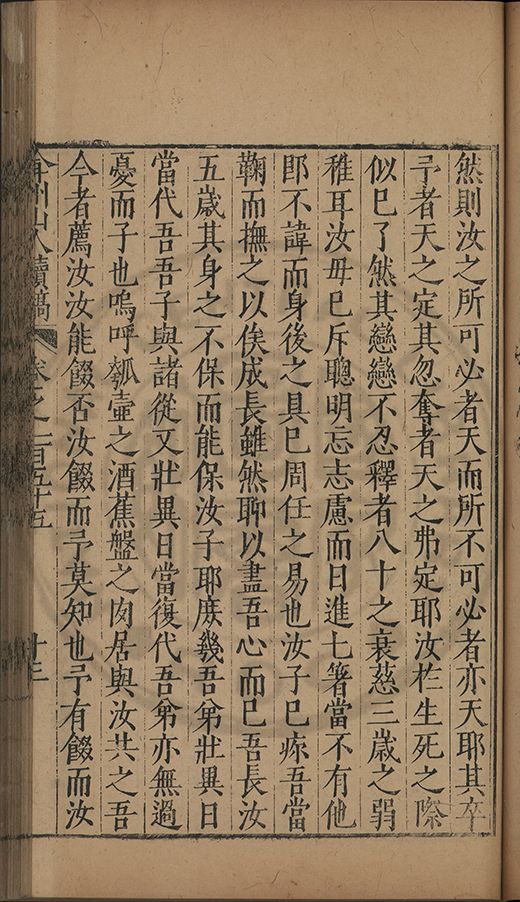 然則汝之所可必者天而所不可必者亦天耶其卒
予者天之定其忽奪者天之弗定耶汝扵生死之際
似已了然其戀戀不忍釋者八十之衰慈三歲之弱
稚耳汝毋已斥聰明忘志慮而日進七箸當不有他
卽不諱而身後之具已周任之易也汝子已疹吾當
鞠而撫之以俟成長雖然聊以盡吾心而已吾長汝
五歲其身之不保而能保汝子耶庶幾吾弟壯異日
當代吾吾子與諸從又壯異日當復代吾弟亦無過
憂而子也嗚呼瓠壷之酒蕉盤之肉居與汝共之吾
今者薦汝汝能餟否汝餟而予莫知也予有餟而汝
弇州山人續稿 卷之一百五十五 十三